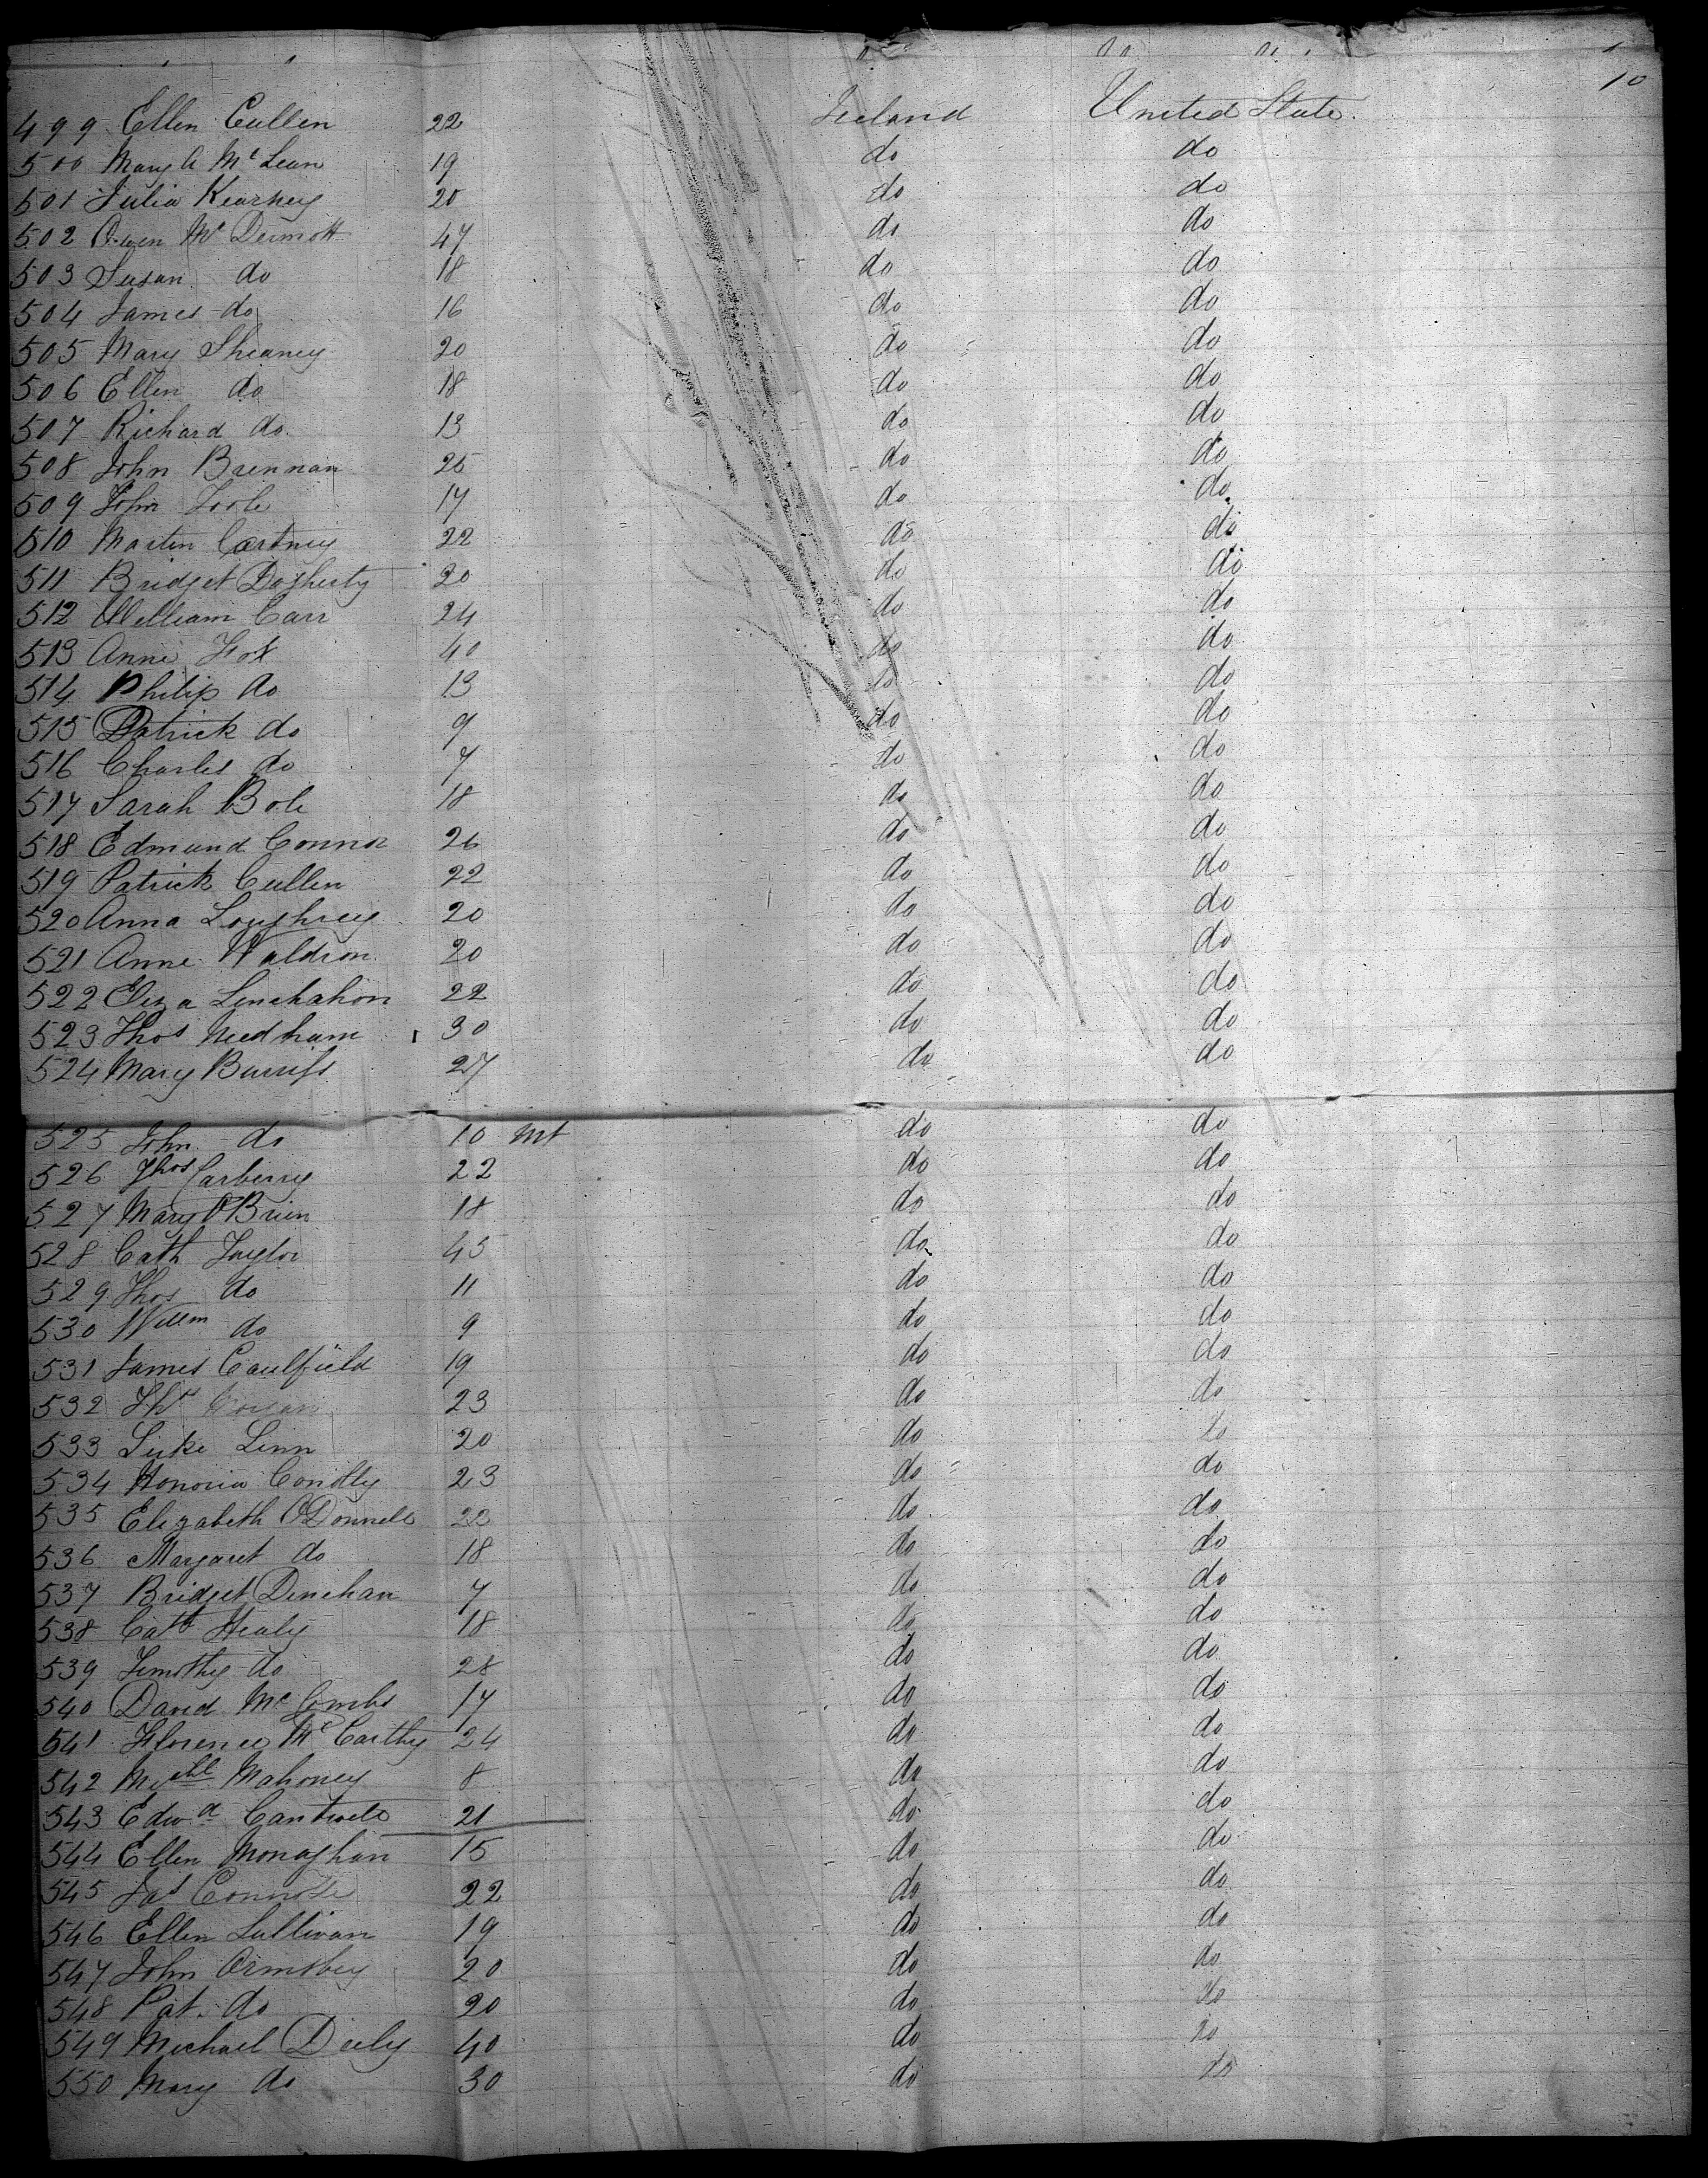 10
499 Ellen Cullen 22 Ireland United State
500 Mary A McLean 19 do do
501 Julia Kearney 20 do do
502 Owen McDermott 47 do do
503 Susan do 18 do do
504 James do 16 do do
505 Mary Sheaney 20 do do
506 Ellen do 18 do do
507 Richard do 13 do do
508 John Brennan 25 do do
509 John Toole 17 do do
510 Martin Cartney 22 do do
511 Bridget Dogherty 20 do do
512 William Carr 24 do do
513 Anne Fox 40 do do
514 Philip do 13 do do
515 Patrick do 9 do do
516 Charles do 7 do do
517 Sarah Bole 18 do do
518 Edmund Connor 26 do do
519 Patrick Cullen 22 do do
520 Anna Loughrey 20 do do
521 Anne Waldron 20 do do
522 Eliza Lenehahon 22 do do
523 Thos Needham 30 do do
524 Mary Burriss 27 do do
525 John do 10 Mt do do
526 Thos Carberry 22 do do
527 Mary O'Brien 18 do do
528 Cath Taylor 45 do do
529 Thos do 11 do do
530 Willm do 9 do do
531 James Caulfield 19 do do
532 23 do do
533 Luke Linn 20 do do
534 Honoria Conolly 23 do do
535 Elizabeth O'Donnell 22 do do
536 Margaret do 18 do do
537 Bridget Dinehan 7 do do
538 Cath Healy 18 do do
539 Timothy do 28 do do
540 David McCombs 17 do do
541 Florence McCarthy 24 do do
542 Mahoney 8 do do
543 Edwd Cantwell 21 do do
544 Ellen Monaghan 15 do do
545 Jas 22 do do
546 Ellen Sullivan 19 do do
547 John Ormsbey 20 do do
548 Pat. do 20 do do
549 Michael Deely 40 do do
550 Mary do 30 do do